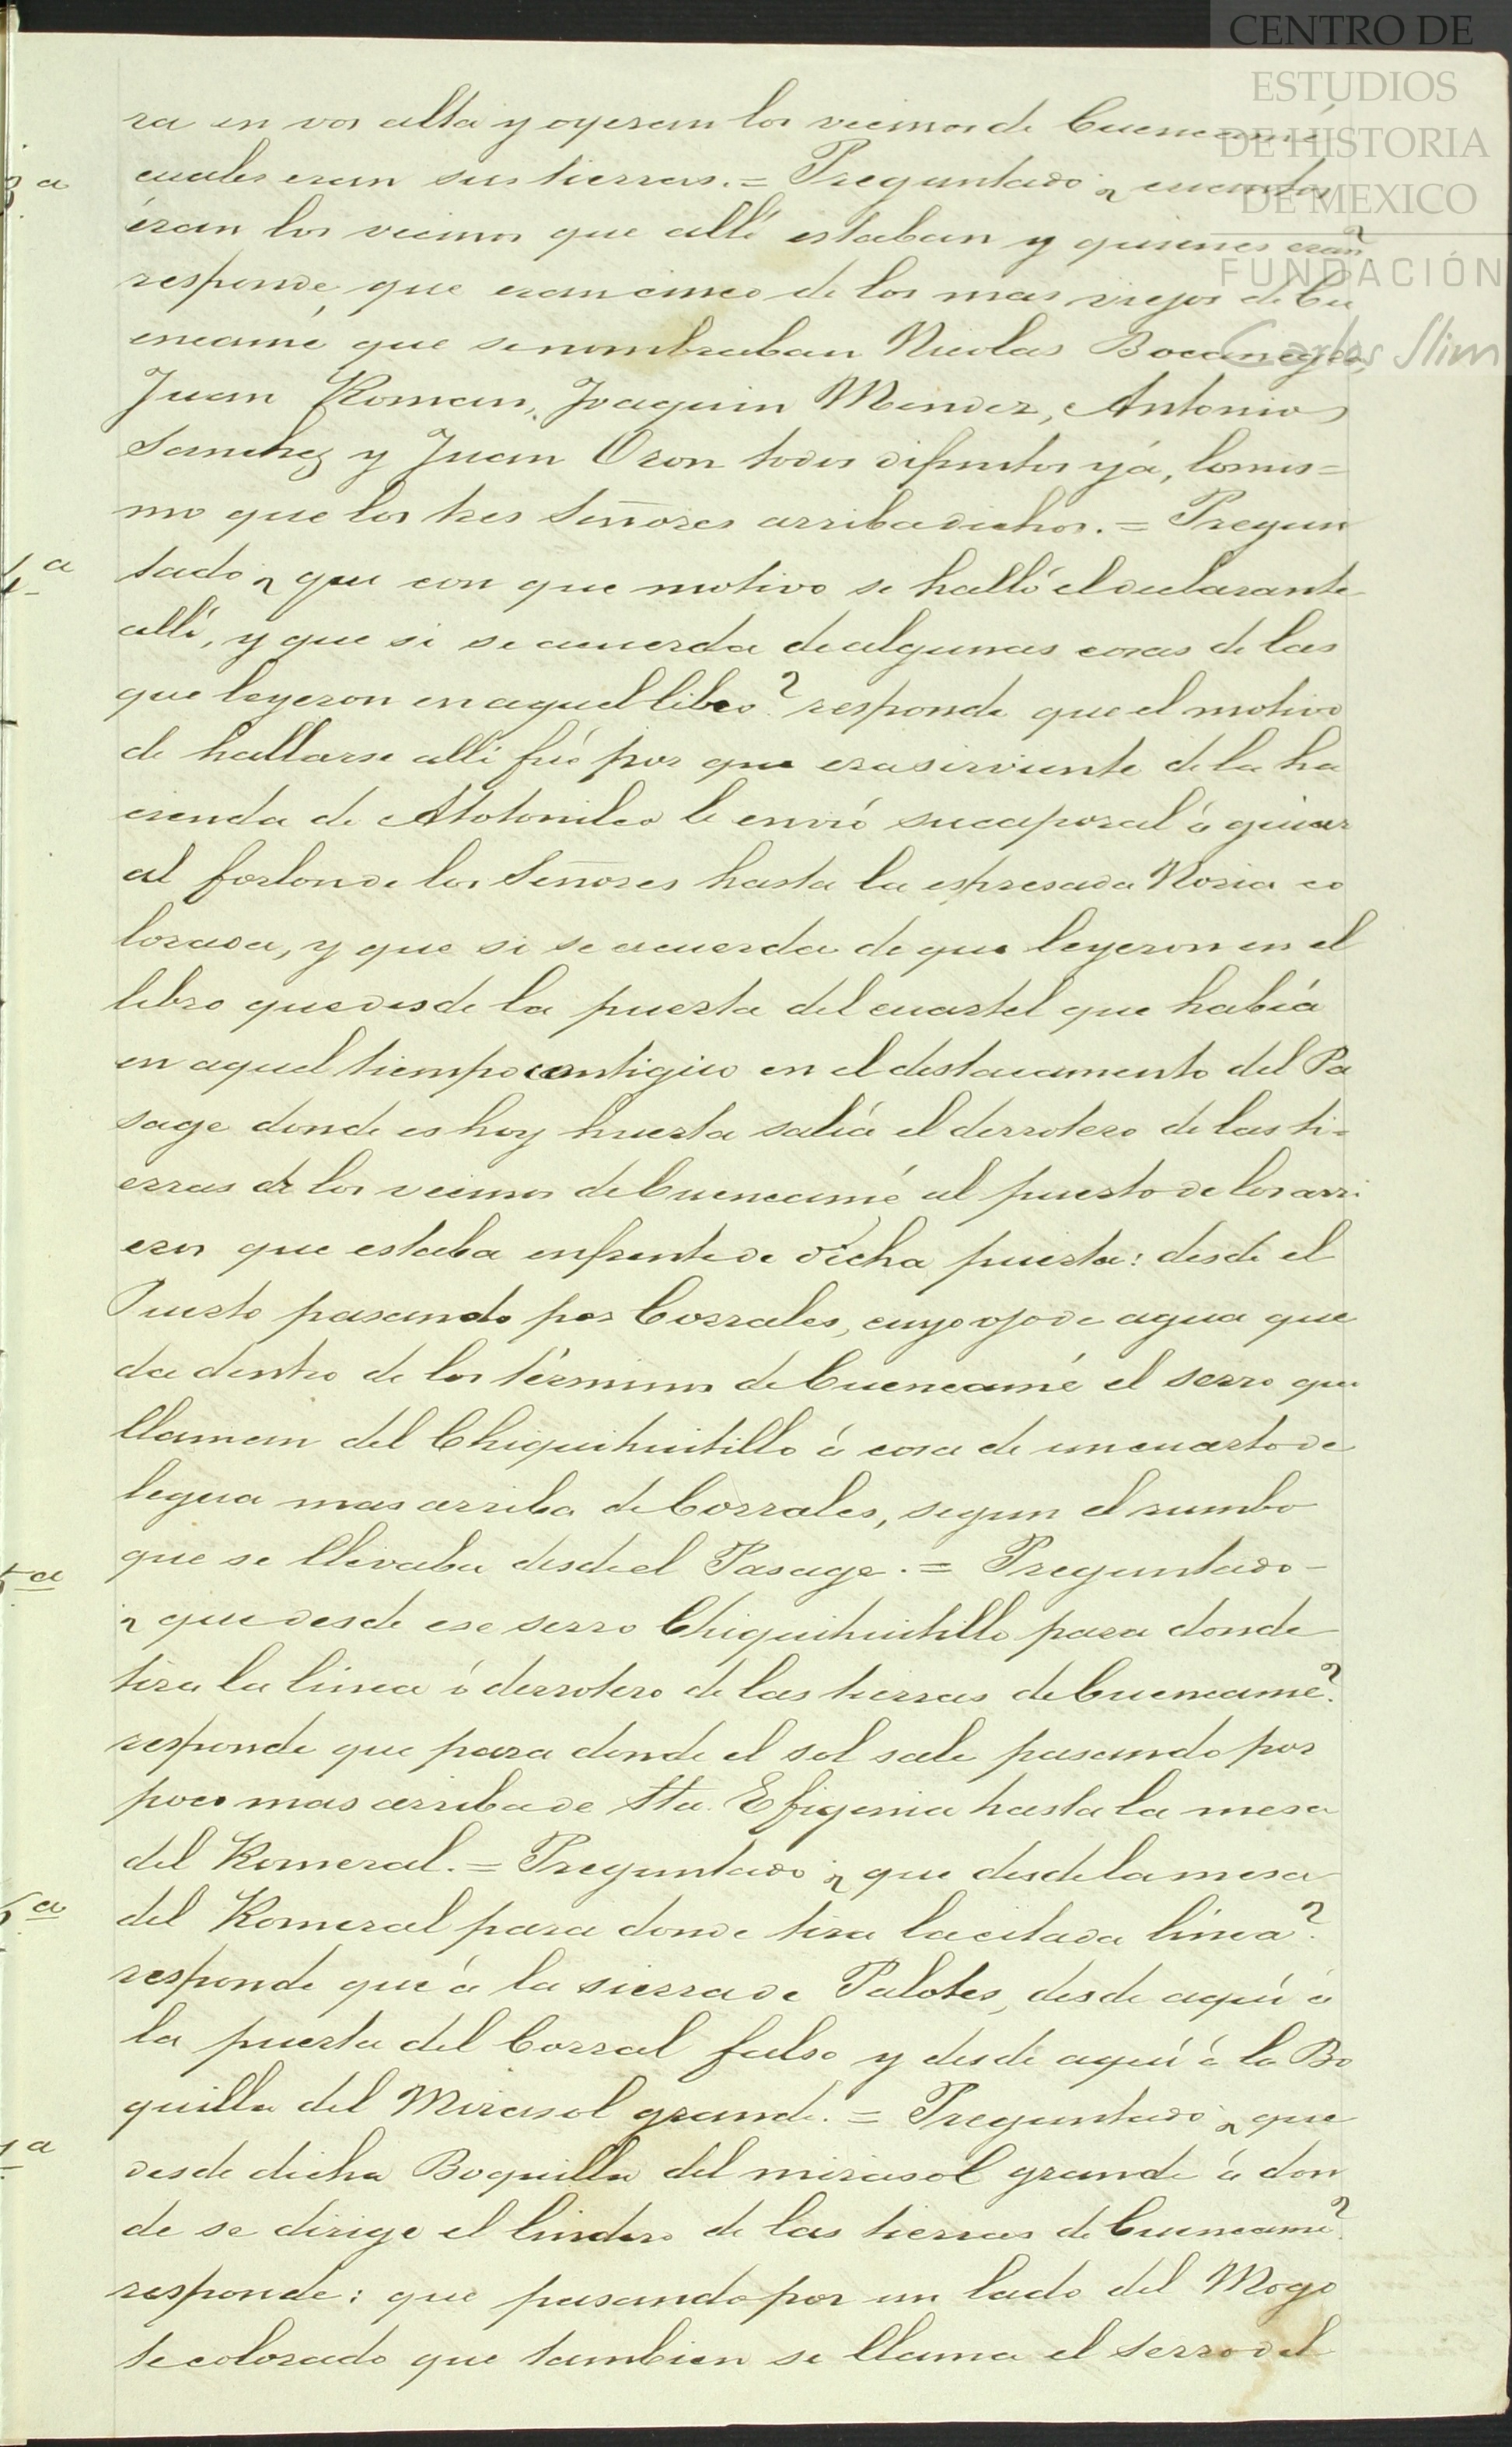 CENTRO DE
ESTUDIOS
DE HISTORIA
DE MEXICO
FUNDACIÓN
Carlos Slim
ra en vos alta y oyeran los vecinos de Cuencamé
3a cuales eran sus tierras.= Preguntado ¿ cuantos
éran los vecinos que allí estaban y quienes eran?
responde, que eran cinco de los mas viejos de Cu
encamé, que se nombraban Nicolas Bocanegra,
Juan Roman, Joaquin Mendez, Antonio
Sanchez y Juan Ozon todos difuntos yá, lo mis=
mo que los tres Señores arriba dichos.= Pregun
4a tado ¿ que con que motivo se halló el declarante
allí, y que si se acuerda de algunas cosas de las
que leyeron en aquel libro? responde que el motivo
de hallarse allí fué por que era sirviente de la ha
cienda de Atotonilco le envió su caporal á guiar
al forlon de los Señores hasta la espresada Noria co
lorada, y que si se acuerda de que leyeron en el
libro que desde la puerta del cuartel que había
en aquel tiempo contiguo en el destacamento del Pa
sage donde es hoy huerta salía el derrotero de las ti-
erras de los vecinos de Cuencamé al puerto de los arri
eros que estaba enfrente de dicha puerta: desde el
Puerto pasando por Corrales, cuyo ojo de agua que
da dentro de los términos de Cuencamé el serro que
llaman del Chiquihuitillo á cosa de un cuarto de
legua mas arriba de Corrales, segun el rumbo
que se llevaba desde el Pasage.= Preguntado-
5a ¿ que desde ese serro Chiquihuitillo para donde
tira la linea ó derrotero de las tierras de Cuencamé?
responde que para donde el sol sale pasando por
poco mas arriba de Sta. Efigenia hasta la mesa
del Romeral.= Preguntado ¿ que desde la mesa
6a del Romeral para donde tira la citada línea?
responde que á la sierra de Palotes, desde aquí á
la puerta del Corral falso y desde aquí á la Bo
quilla del Mirasol grande.= Preguntado ¿ que
7a desde dicha Boquilla del mirasol grande á don
de se dirige el lindero de las tierras de Cuencamé?
responde: que pasando por un lado del Mogo
te colorado que tambien se llama el serro del